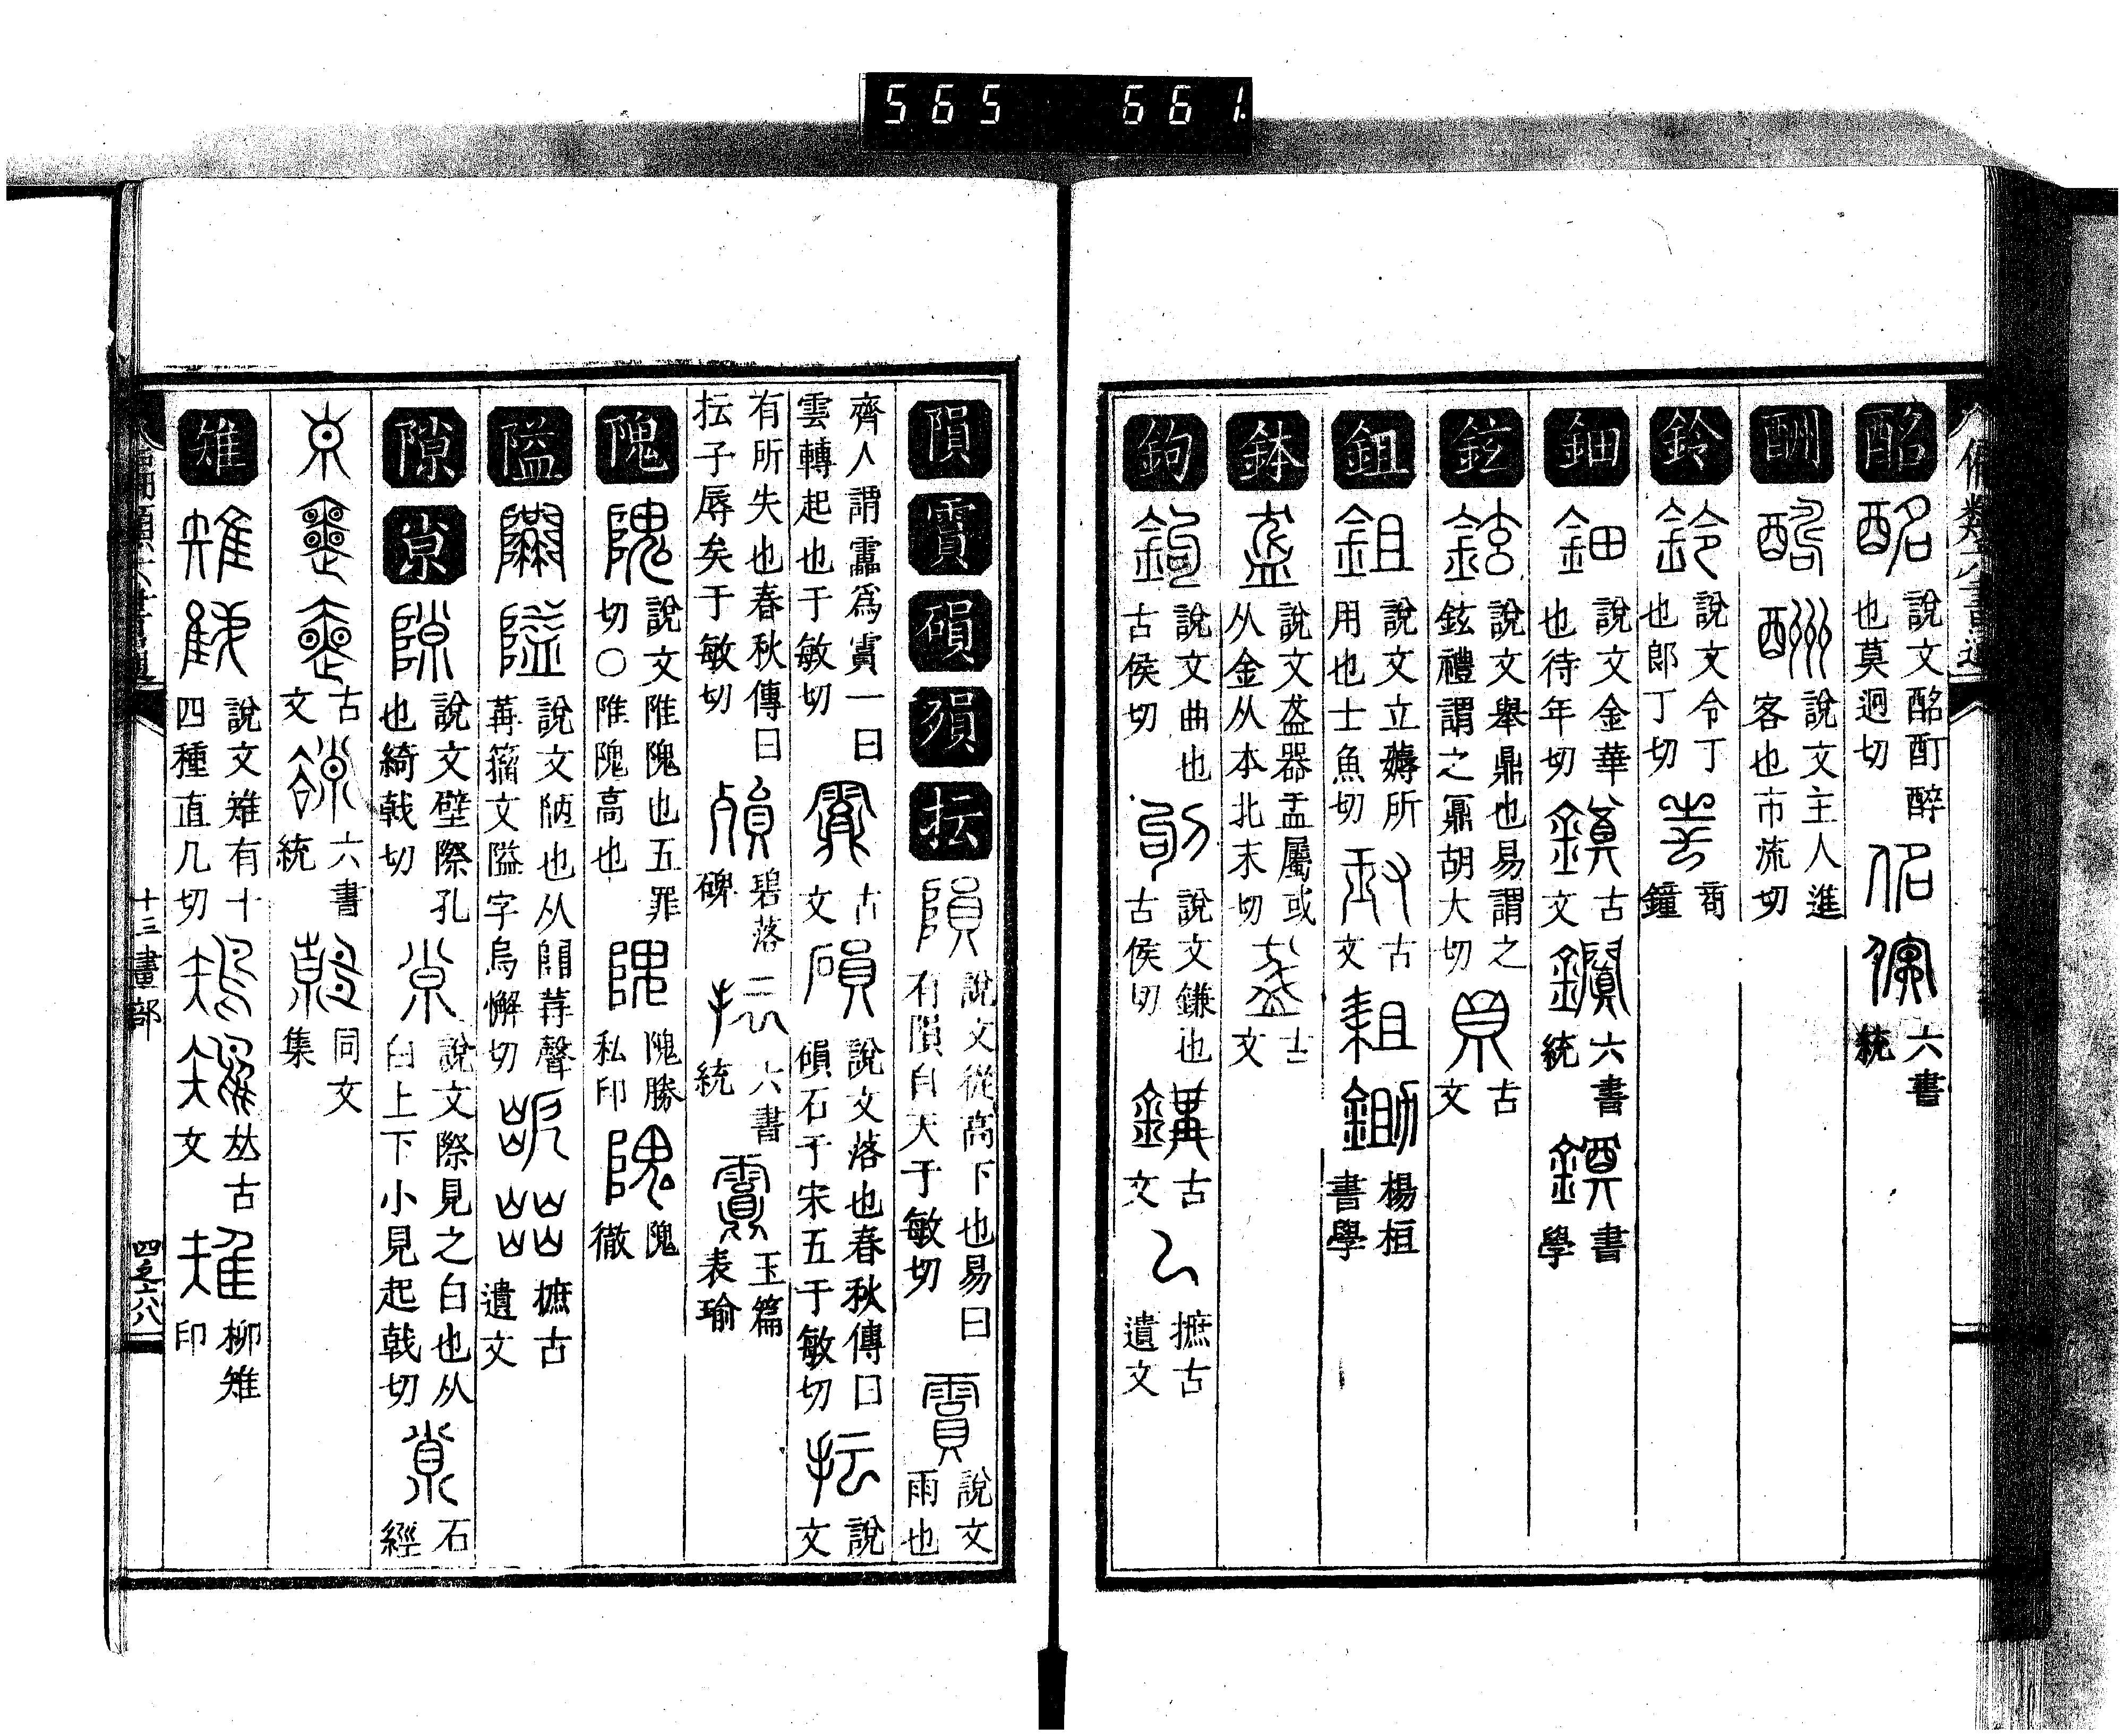 565 661
酩 說文酩酊醉也莫迥切 六書統
酬 說文主人進客也市流切
鈴 說文令丁也郎丁切 商鐘
鈿 說文金華也待年切 古文 六書統 書學
鉉 說文舉鼎也易謂之鉉禮謂之鼏胡犬切 古文
鉏 說文立薅所用也士魚切 古文 楊桓書學
鉢 說文盋器盂屬或从金从本北末切 古文
鉤 說文曲也古侯切 說文鎌也古侯切 古文 摭古遺文
隕 霣 磒 殞 抎 說文從高下也易曰有隕自天于敏切 說文雨也
齊人謂靁爲霣一曰雲轉起也于敏切 古文 說文落也春秋傳曰磒石于宋五于敏切 說文
有所失也春秋傳曰抎子辱矣于敏切 碧落碑 六書統 玉篇 表瑜
隗 說文陮隗也五罪切○陮隗高也 隗勝私印 隗徹
隘 說文陋也从𨺅𦭝聲籀文隘字烏懈切 摭古遺文
隙 𡭴 說文壁際孔也綺戟切 說文際見之白也从白上下小見起戟切 石經
古文 六書統 同文集
雉 說文雉有十四種直几切 古文 柳雉印
十三畫部
四之六八